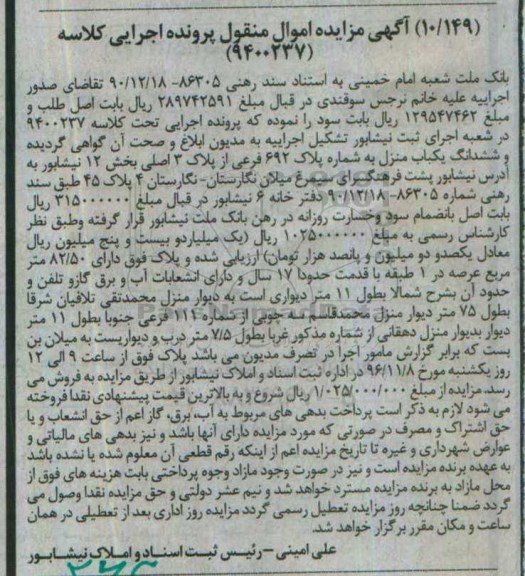 (۱۰/۱۴۹) آگهی مزایده اموال منقول پرونده اجرایی کلاسه
(۹۴۰۰۲۳۷)
بانک ملت شعبه امام خمینی به استناد سند رهنی ۸۶۳۰۵- ۹۰/۱۲/۱۸ تقاضای صدور
اجراییه علیه خانم نرجس سوقندی در قبال مبلغ ۲۸۹۷۴۲۵۹۱ ریال بابت اصل طلب و
مبلغ ۱۲۹۵۴۷۴۶۲ ریال بابت سود را نموده که پرونده اجرایی تحت کلاسه ۹۴۰۰۲۳۷
در شعبه اجرای ثبت نیشابور تشکیل اجراییه به مدیون ابلاغ و صحت آن گواهی گردیده
و ششدانگ یکباب منزل به شماره پلاک ۶۹۲ فرعی از پلاک ۳ اصلی بخش ۱۲ نیشابور به
آدرس نیشابور پشت فرهنگسرای سیمرغ میلان نگارستان- نگارستان ۴ پلاک ۴۵ طبق سند
رهنی شماره ۸۶۳۰۵- ۹۰/۱۲/۱۸ دفتر خانه ۶ نیشابور در قبال مبلغ ۳۱۵۰۰۰۰۰۰ ریال
بابت اصل بانضمام سود وخسارت روزانه در رهن بانک ملت نیشابور قرار گرفته وطبق نظر
کارشناس رسمی به مبلغ ۱۰۲۵۰۰۰۰۰۰ ریال (یک میلیاردو بیست و پنج میلیون ریال
معادل یکصدو دو میلیون و پانصد هزار تومان) ارزیابی شده و پلاک فوق دارای ۸۲/۵۰ متر
مربع عرصه در ۱ طبقه با قدمت حدودا ۱۷ سال و دارای انشعابات آب و برق گازو تلفن و
حدود آن بشرح شمالا بطول ۱۱ متر دیواری است به دیوار منزل محمدتقی تلافیان شرقا
بطول ۷۵ متر دیوار منزل محمدقاسم سه چوبی از شماره ۱۱۱ فرعی جنوبا بطول ۱۱ متر
دیوار بدیوار منزل دهقانی از شماره مذکور غربا بطول ۷/۵ متر درب و دیواریست به میلان بن
بست که برابر گزارش مامور اجرا در تصرف مدیون می باشد پلاک فوق از ساعت ۹ الی ۱۲
روز یکشنبه مورخ ۹۶/۱۱/۸ در اداره ثبت اسناد و املاک نیشابور از طریق مزایده به فروش می
رسد. مزایده از مبلغ ۱/۰۲۵/۰۰۰/۰۰۰ ریال شروع و به بالاترین قیمت پیشنهادی نقدا فروخته
می شود لازم به ذکر است پرداخت بدهی های مربوط به آب، برق، گاز اعم از حق انشعاب و یا
حق اشتراک و مصرف در صورتی که مورد مزایده دارای آنها باشد و نیز بدهی های مالیاتی و
عوارض شهرداری و غیره تا تاریخ مزایده اعم از اینکه رقم قطعی آن معلوم شده یا نشده باشد
به عهده برنده مزایده است و نیز در صورت وجود مازاد وجوه پرداختی بابت هزینه های فوق از
محل مازاد به برنده مزایده مسترد خواهد شد و نیم عشر دولتی و حق مزایده نقدا وصول می
گردد ضمنا چنانچه روز مزایده تعطیل رسمی گردد مزایده روز اداری بعد از تعطیلی در همان
ساعت و مکان مقرر برگزار خواهد شد.
علی امینی - رئیس ثبت اسناد و املاک نیشابور